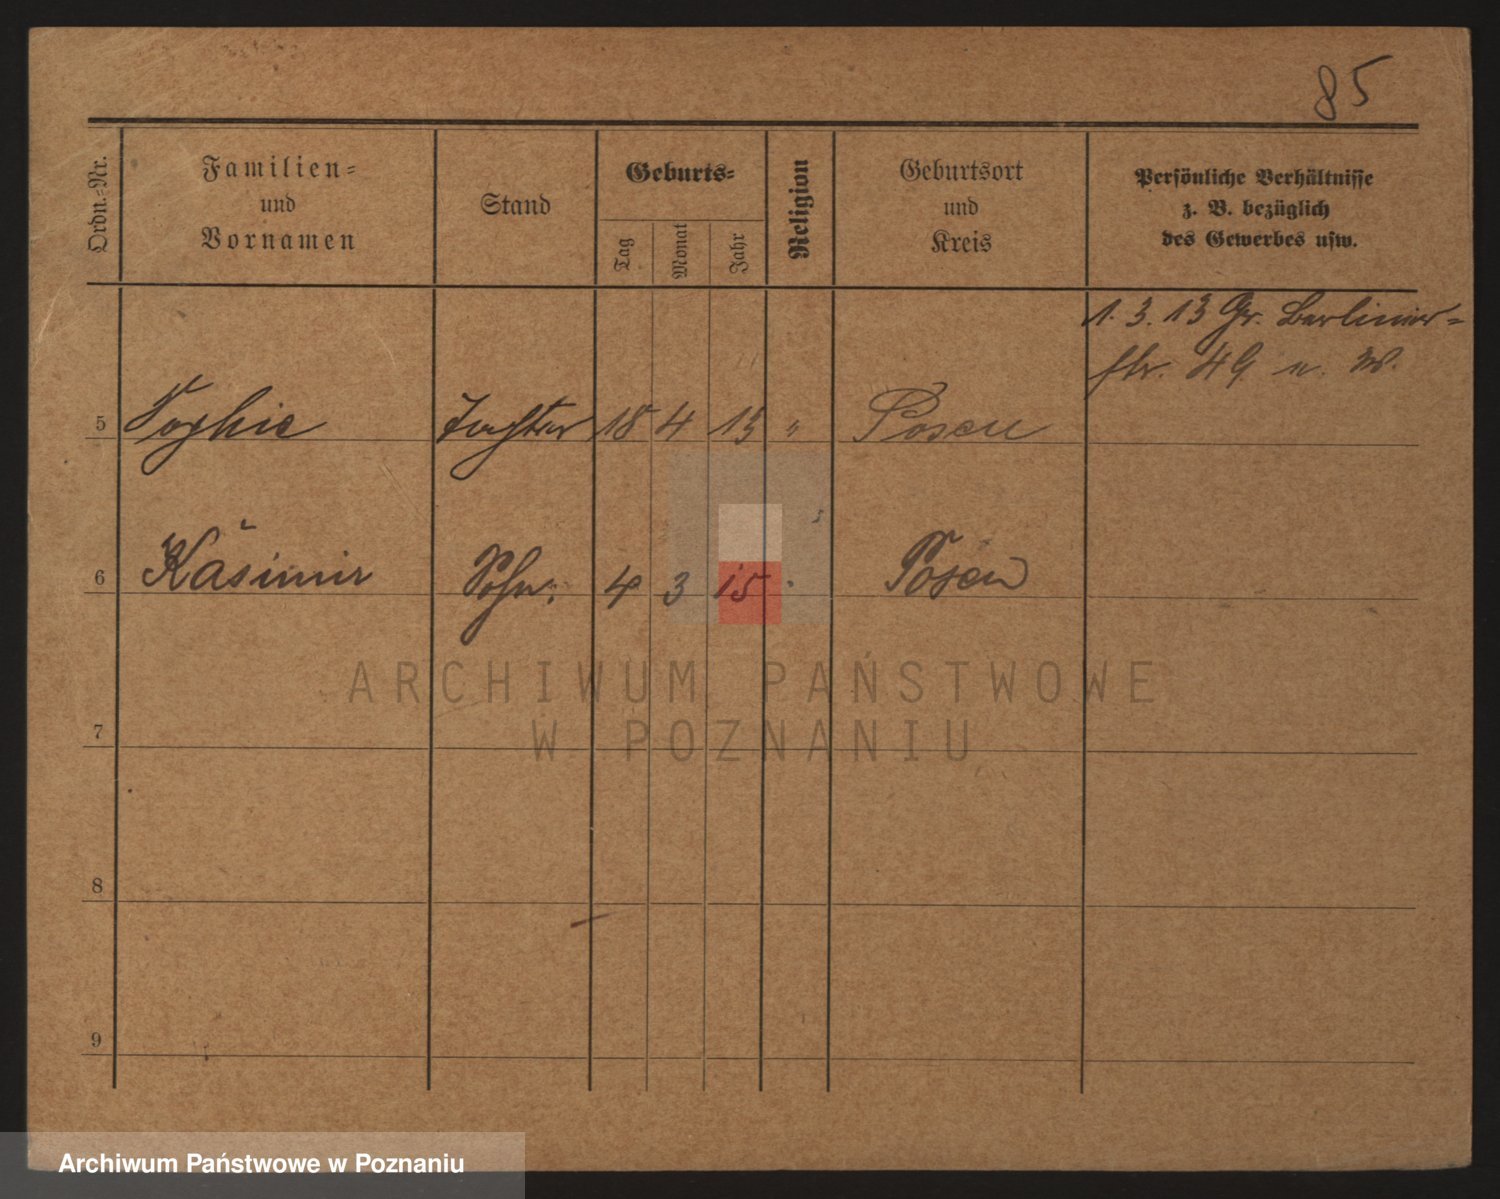 85
Ordn.-Nr.
Familien-
und
Vornamen
Stand
Geburts-
Tag
Monat
Jahr
Religion
Geburtsort
und
Kreis
Persönliche Verhältnisse
z. B. bezüglich
des Gewerbes usw.
1. 3. 13 Gr. Berliner-
str. 49 u. W.
5 Sophie Tochter 18 4 13 " Posen
6 Kasimir Sohn 4 3 15 " Posen
7
8
9
ARCHIWUM PAŃSTWOWE
W POZNANIU
Archiwum Państwowe w Poznaniu